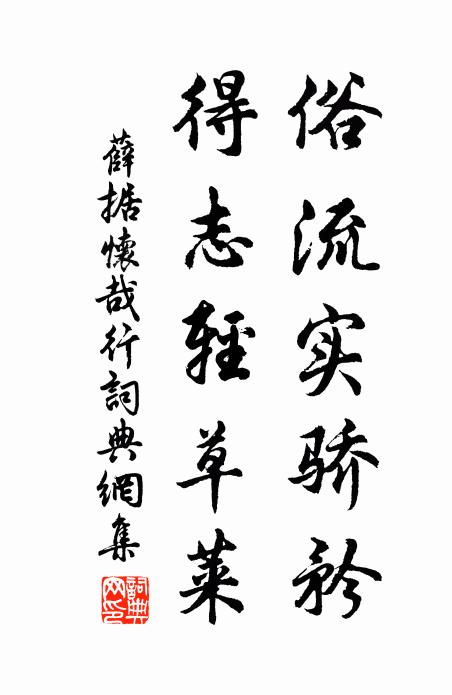 俗流实骄矜
得志輕草莱
薛据懷哉行詞典網集
詞典網印